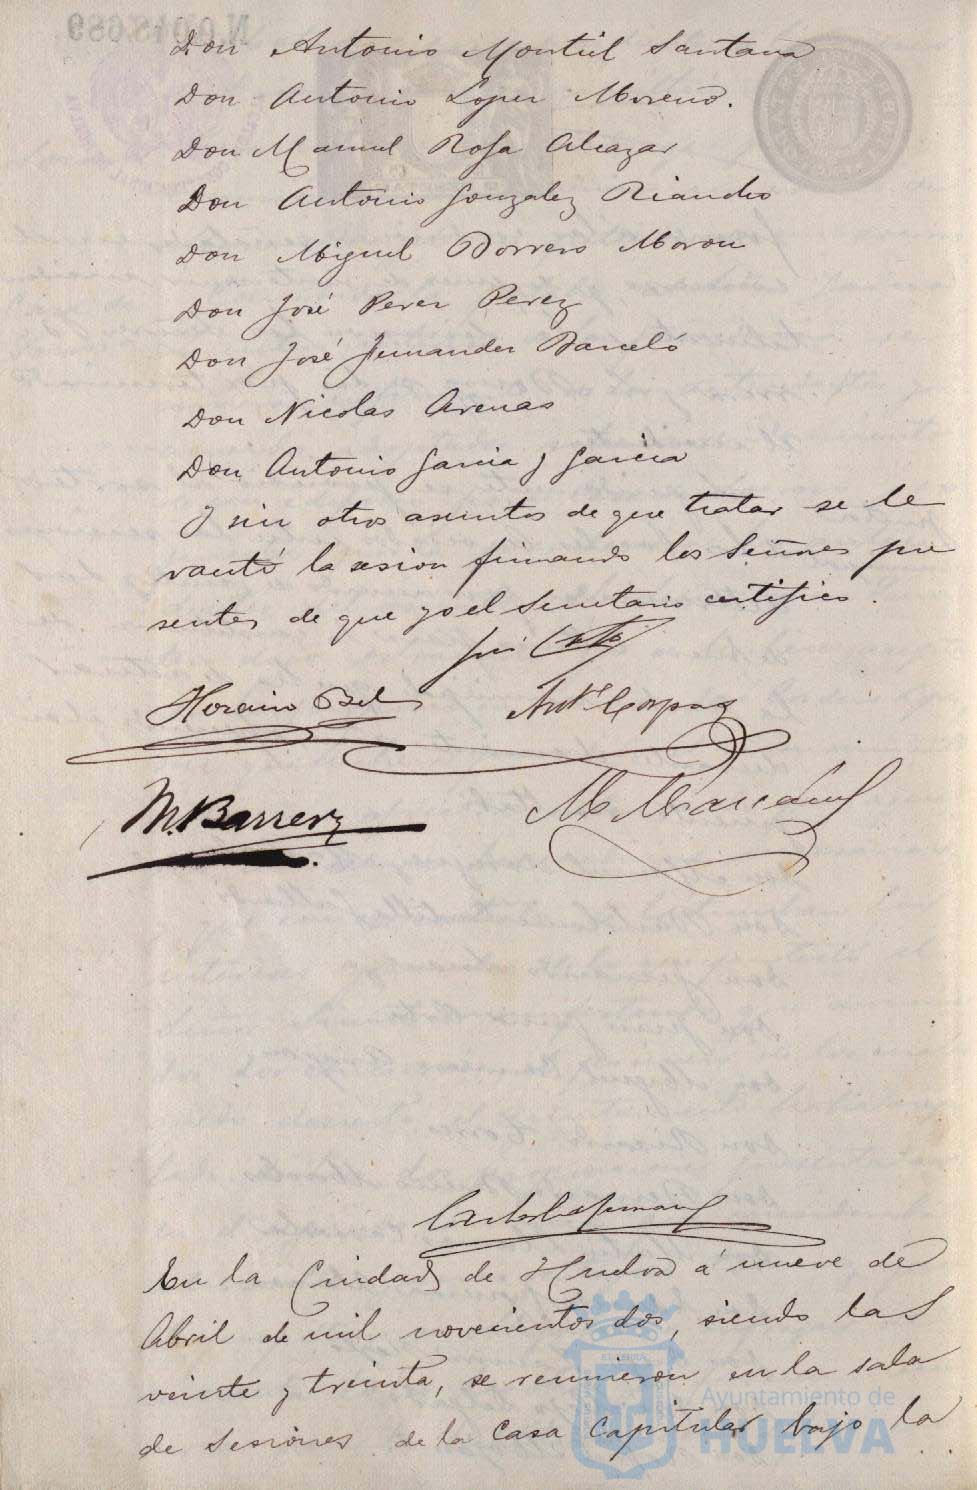 N.0.018.689
Don Antonio Montiel Santana
Don Antonio Lopez Moreno.
Don Manuel Rosa Alcazar
Don Antonio Gonzalez Riancho
Don Miguel Borrero Moron
Don José Perez Perez
Don José Fernandez Barceló
Don Nicolas Arenas
Don Antonio Garcia y Garcia
Y sin otros asuntos de que tratar se le
vantó la sesion firmando los Señores pre
sentes de que yo el Secretario certifico.
Horacio Bel
Antº Corpas
M. Barrera
En la Ciudad de Huelva á nueve de
Abril de mil novecientos dos, siendo las
veinte y treinta, se reunieron en la sala
de Sesiones de la Casa Capitular bajo la
Ayuntamiento de
HUELVA